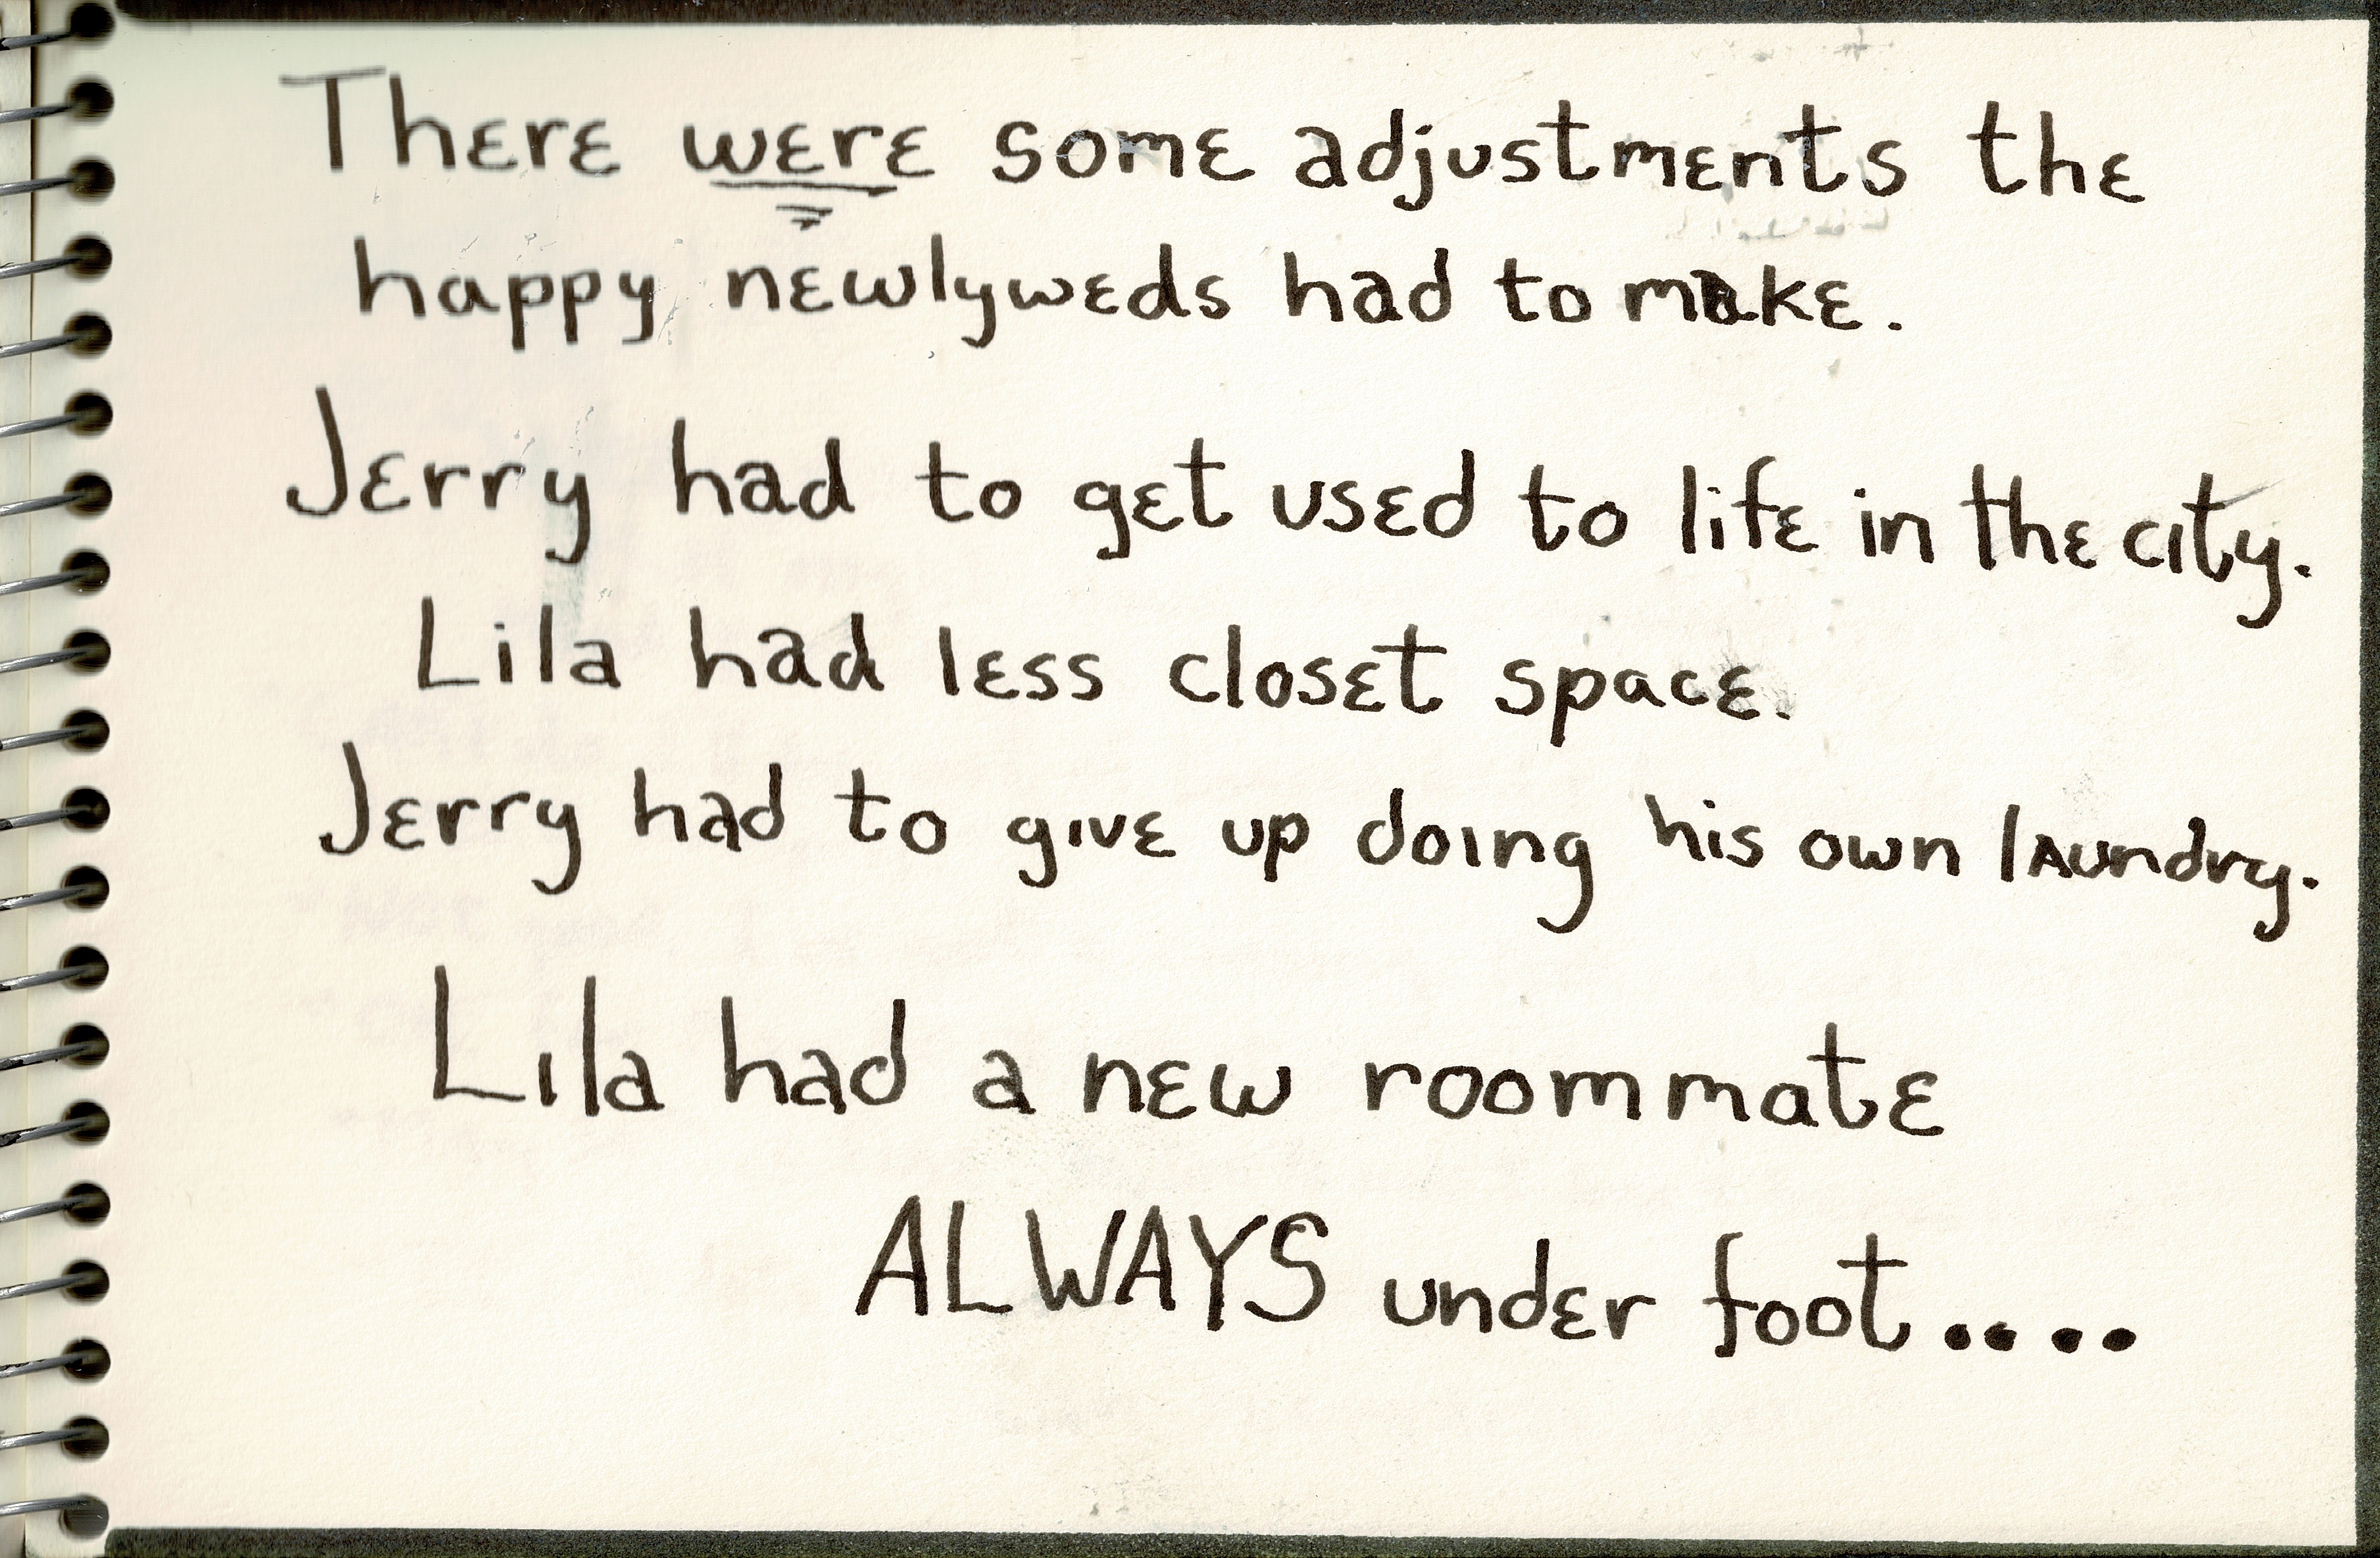 There were some adjustments the
happy newlyweds had to make.
Jerry had to get used to life in the city.
Lila had less closet space.
Jerry had to give up doing his own laundry.
Lila had a new roommate
ALWAYS under foot....